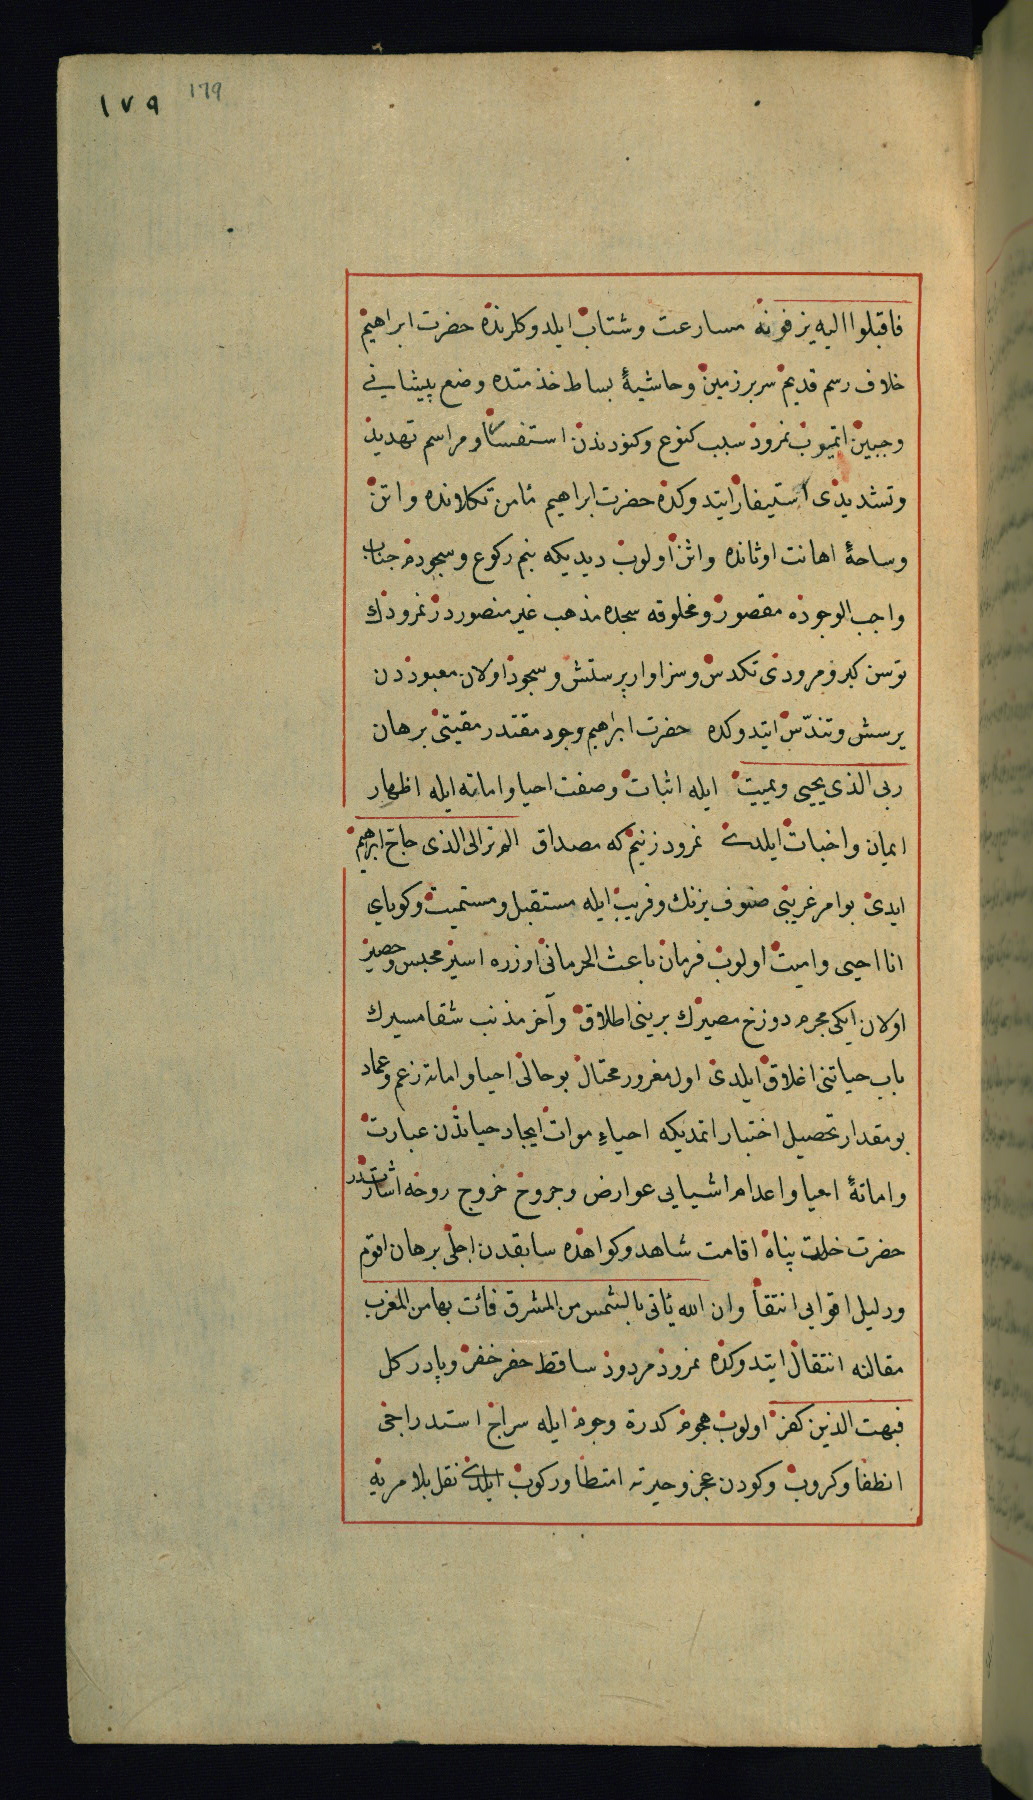 ١٧٩ 179
فاقبلوا اليه يزفون مسارعت وشتاب ايلدوكلرنده حضرت ابراهيم
خلاف رسم قديم سربرزمين وحاشيهٔ بساط خدمتده وضع پيشانئ
وجبين اتميوب نمرود سبب كنوع وكنودندن استفسار ومراسم تهديد
وتشديدى استيفار ايتدوكده حضرت ابراهيم مأمن تكلانده واتن
وساحهٔ اهانت اوثانده واثن اولوب ديديكه بنم ركوع وسجودم جناب
واجب الوجوده مقصور ومخلوقه سجده مذهب غير منصوردر نمرودك
توسن كبر ومرودى تكدس وسزاوار پرستش وسجود اولان معبوددن
پرسش وتندّس ايتدوكده حضرت ابراهيم وجود مقتدر مقيتى برهان
ربى الذى يحيى ويميت ايله اثبات وصفت احيا واماته ايله اظهار
ايمان واخبات ايلدى نمرود زنيم كه مصداق الم تر الى الذى حاج ابرهيم
ايدى بو امر غريبى صنوف نيرنك وفريب ايله مستقبل ومستميت وكوياى
انا احيى واميت اولوب فرمان باعث الحرمانى اوزره اسير محبس وحصير
اولان ايكى مجرم دوزخ مصيرك برينى اطلاق وآخر مذنب شقا مسيرك
باب حياتنى اغلاق ايلدى اول مغرور محتال بو حالى احيا واماته زعم وعماد
بو مقدار تحصيل اختبار اتمديكه احياءِ موات ايجاد حياتدن عبارت
واماتهٔ احيا واعدام اشيايى عوارض وجروح خروج روحه اشارتدر
حضرت خلت پناه اقامت شاهد وكواهده سابقدن اجلى برهان اقوم
ودليل اقوايى انتقا وان الله يأتى بالشمس من المشرق فأت بها من المغرب
مقالنه انتقال ايتدوكده نمرود مردود ساقط حفر خفر وپادركل
فبهت الذين كفر اولوب هجوم كدرة وجوم ايله سراج استدراجى
انطفا وكروب وكودن عجز وحيرته امتطا وركوب ايلدى نقل بلا مريه